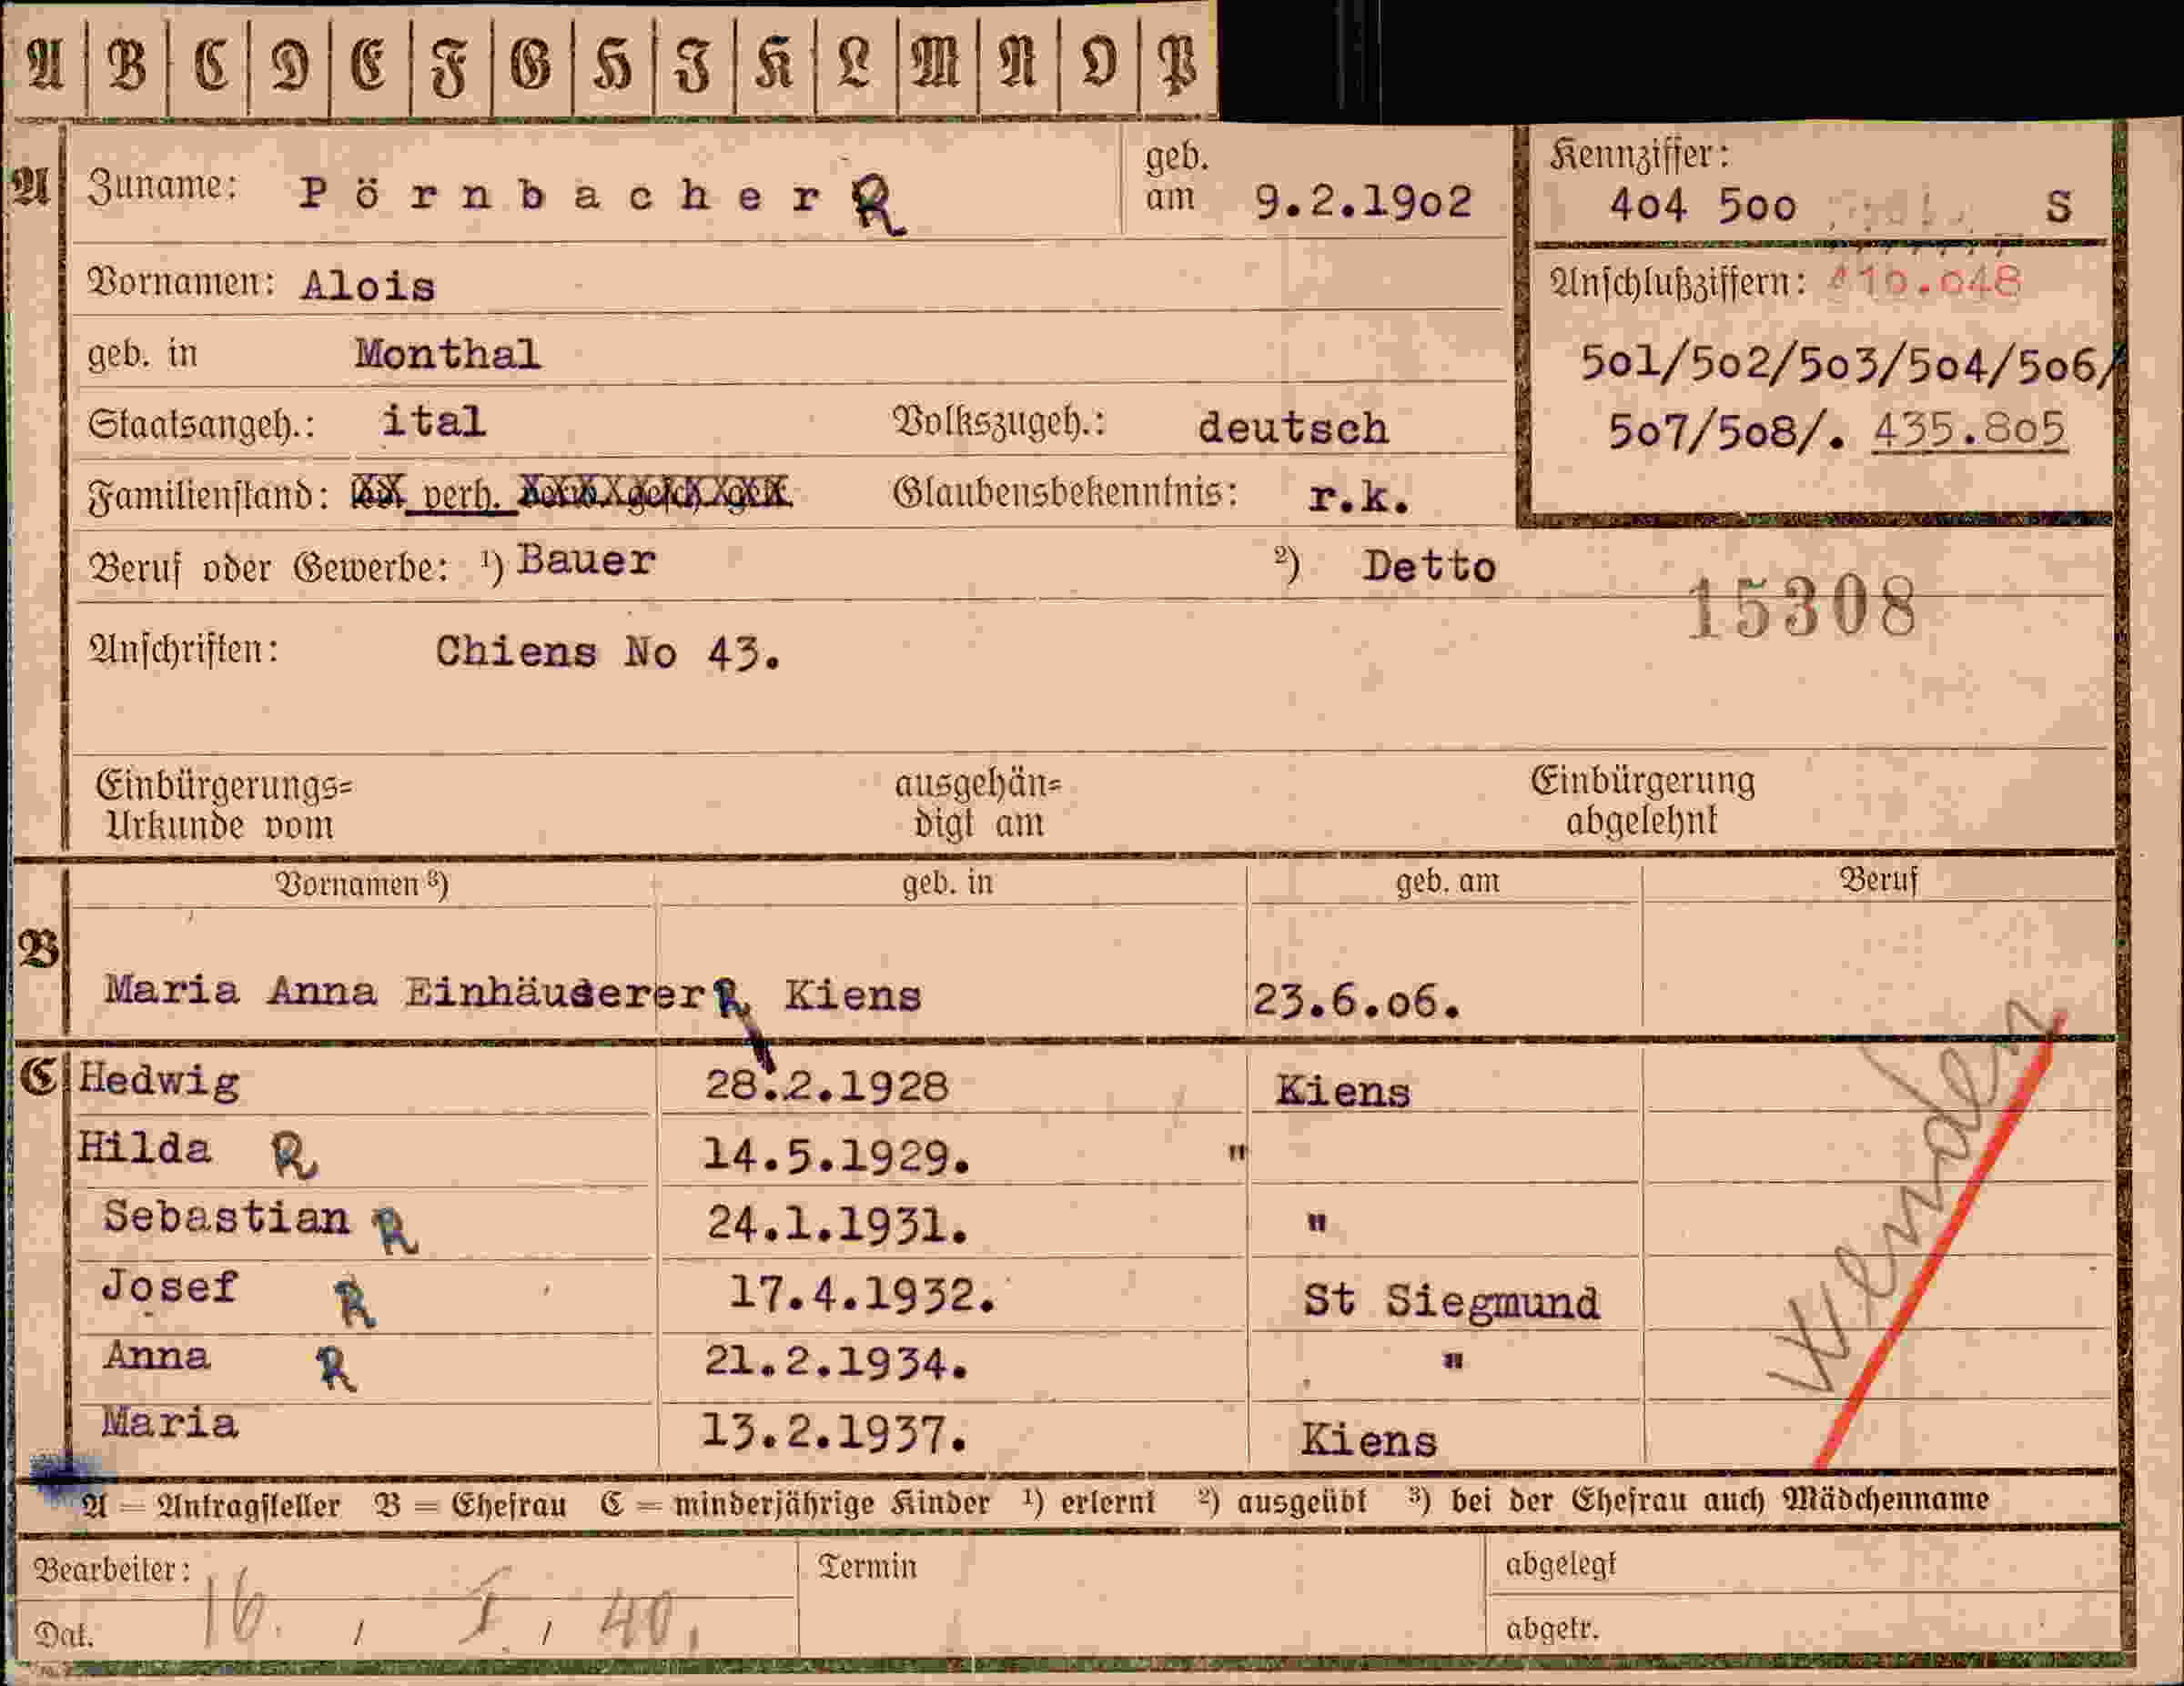 A B C D E F G H I K L M N O P
A Zuname: Pörnbacher R geb. am 9.2.1902
Kennziffer:
404 500 S
Vornamen: Alois
Anschlußziffern: 410.048
geb. in Monthal
501/502/503/504/506/
Staatsangeh.: ital Volkszugeh.: deutsch
507/508/. 435.805
Familienstand: verh. Glaubensbekenntnis: r.k.
Beruf oder Gewerbe: ¹) Bauer ²) Detto
15308
Anschriften: Chiens No 43.
Einbürgerungs= ausgehän= Einbürgerung
Urkunde vom digt am abgelehnt
Vornamen ³) geb. in geb. am Beruf
B
Maria Anna Einhäuserer R Kiens 23.6.06.
C Hedwig 28.2.1928 Kiens
Hilda R 14.5.1929. "
Sebastian R 24.1.1931. "
Josef R 17.4.1932. St Siegmund
Anna R 21.2.1934. "
Maria 13.2.1937. Kiens
Wenden
A = Antragsteller B = Ehefrau C = minderjährige Kinder ¹) erlernt ²) ausgeübt ³) bei der Ehefrau auch Mädchenname
Bearbeiter: Termin abgelegt
Dat. 16. / I. / 40. abgetr.